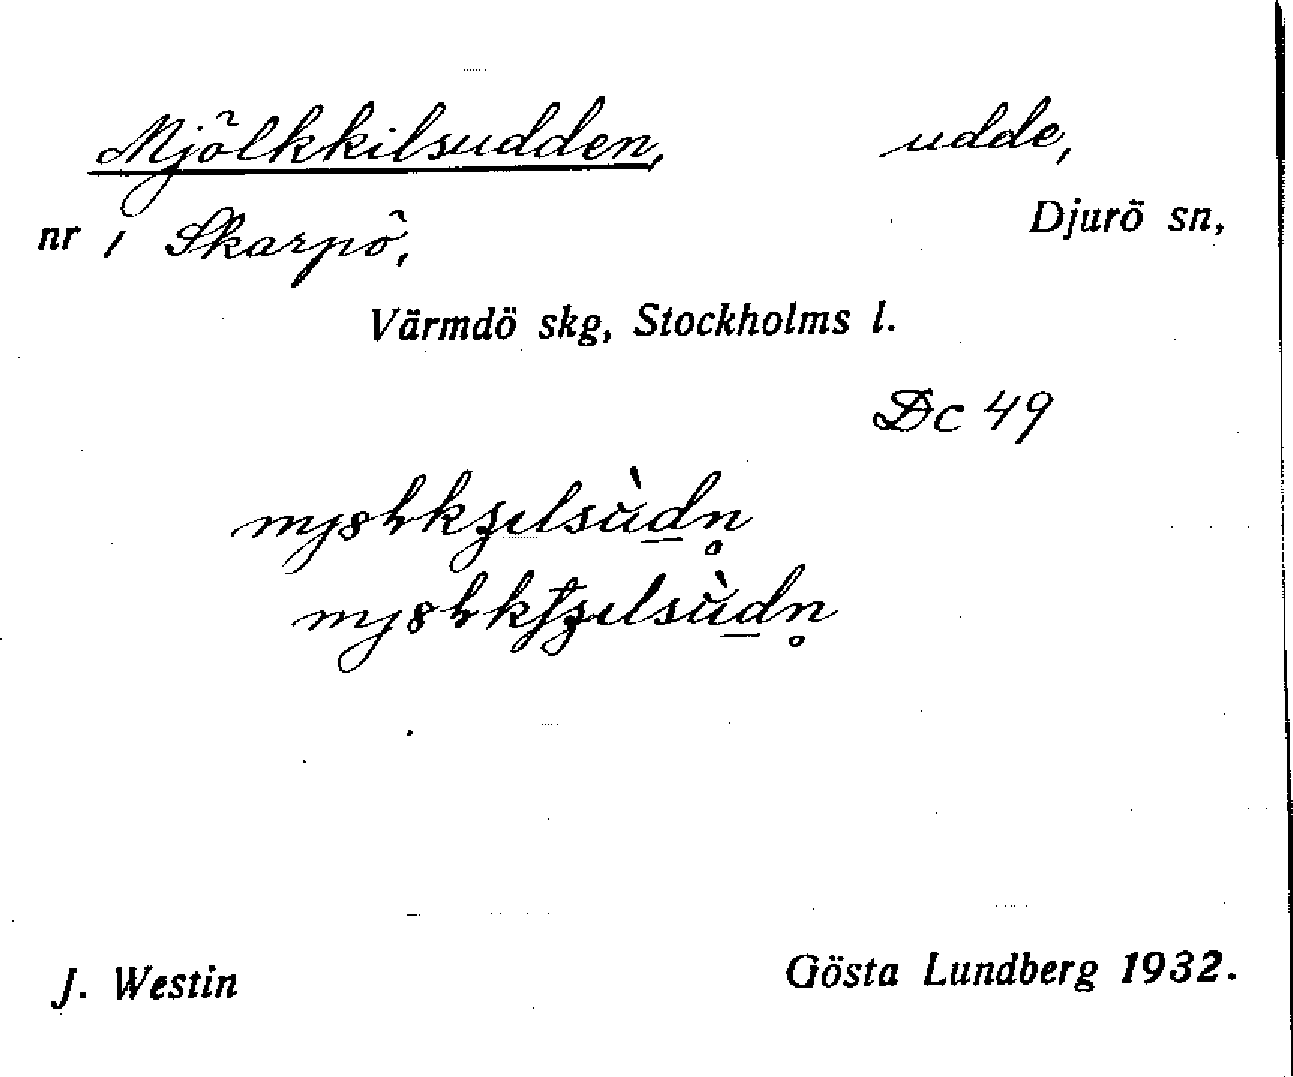 Mjölkkilsudden, udde,
nr 1 Skarpö, Djurö sn,
Värmdö skg, Stockholms l.
Dc 49
J. Westin Gösta Lundberg 1932.